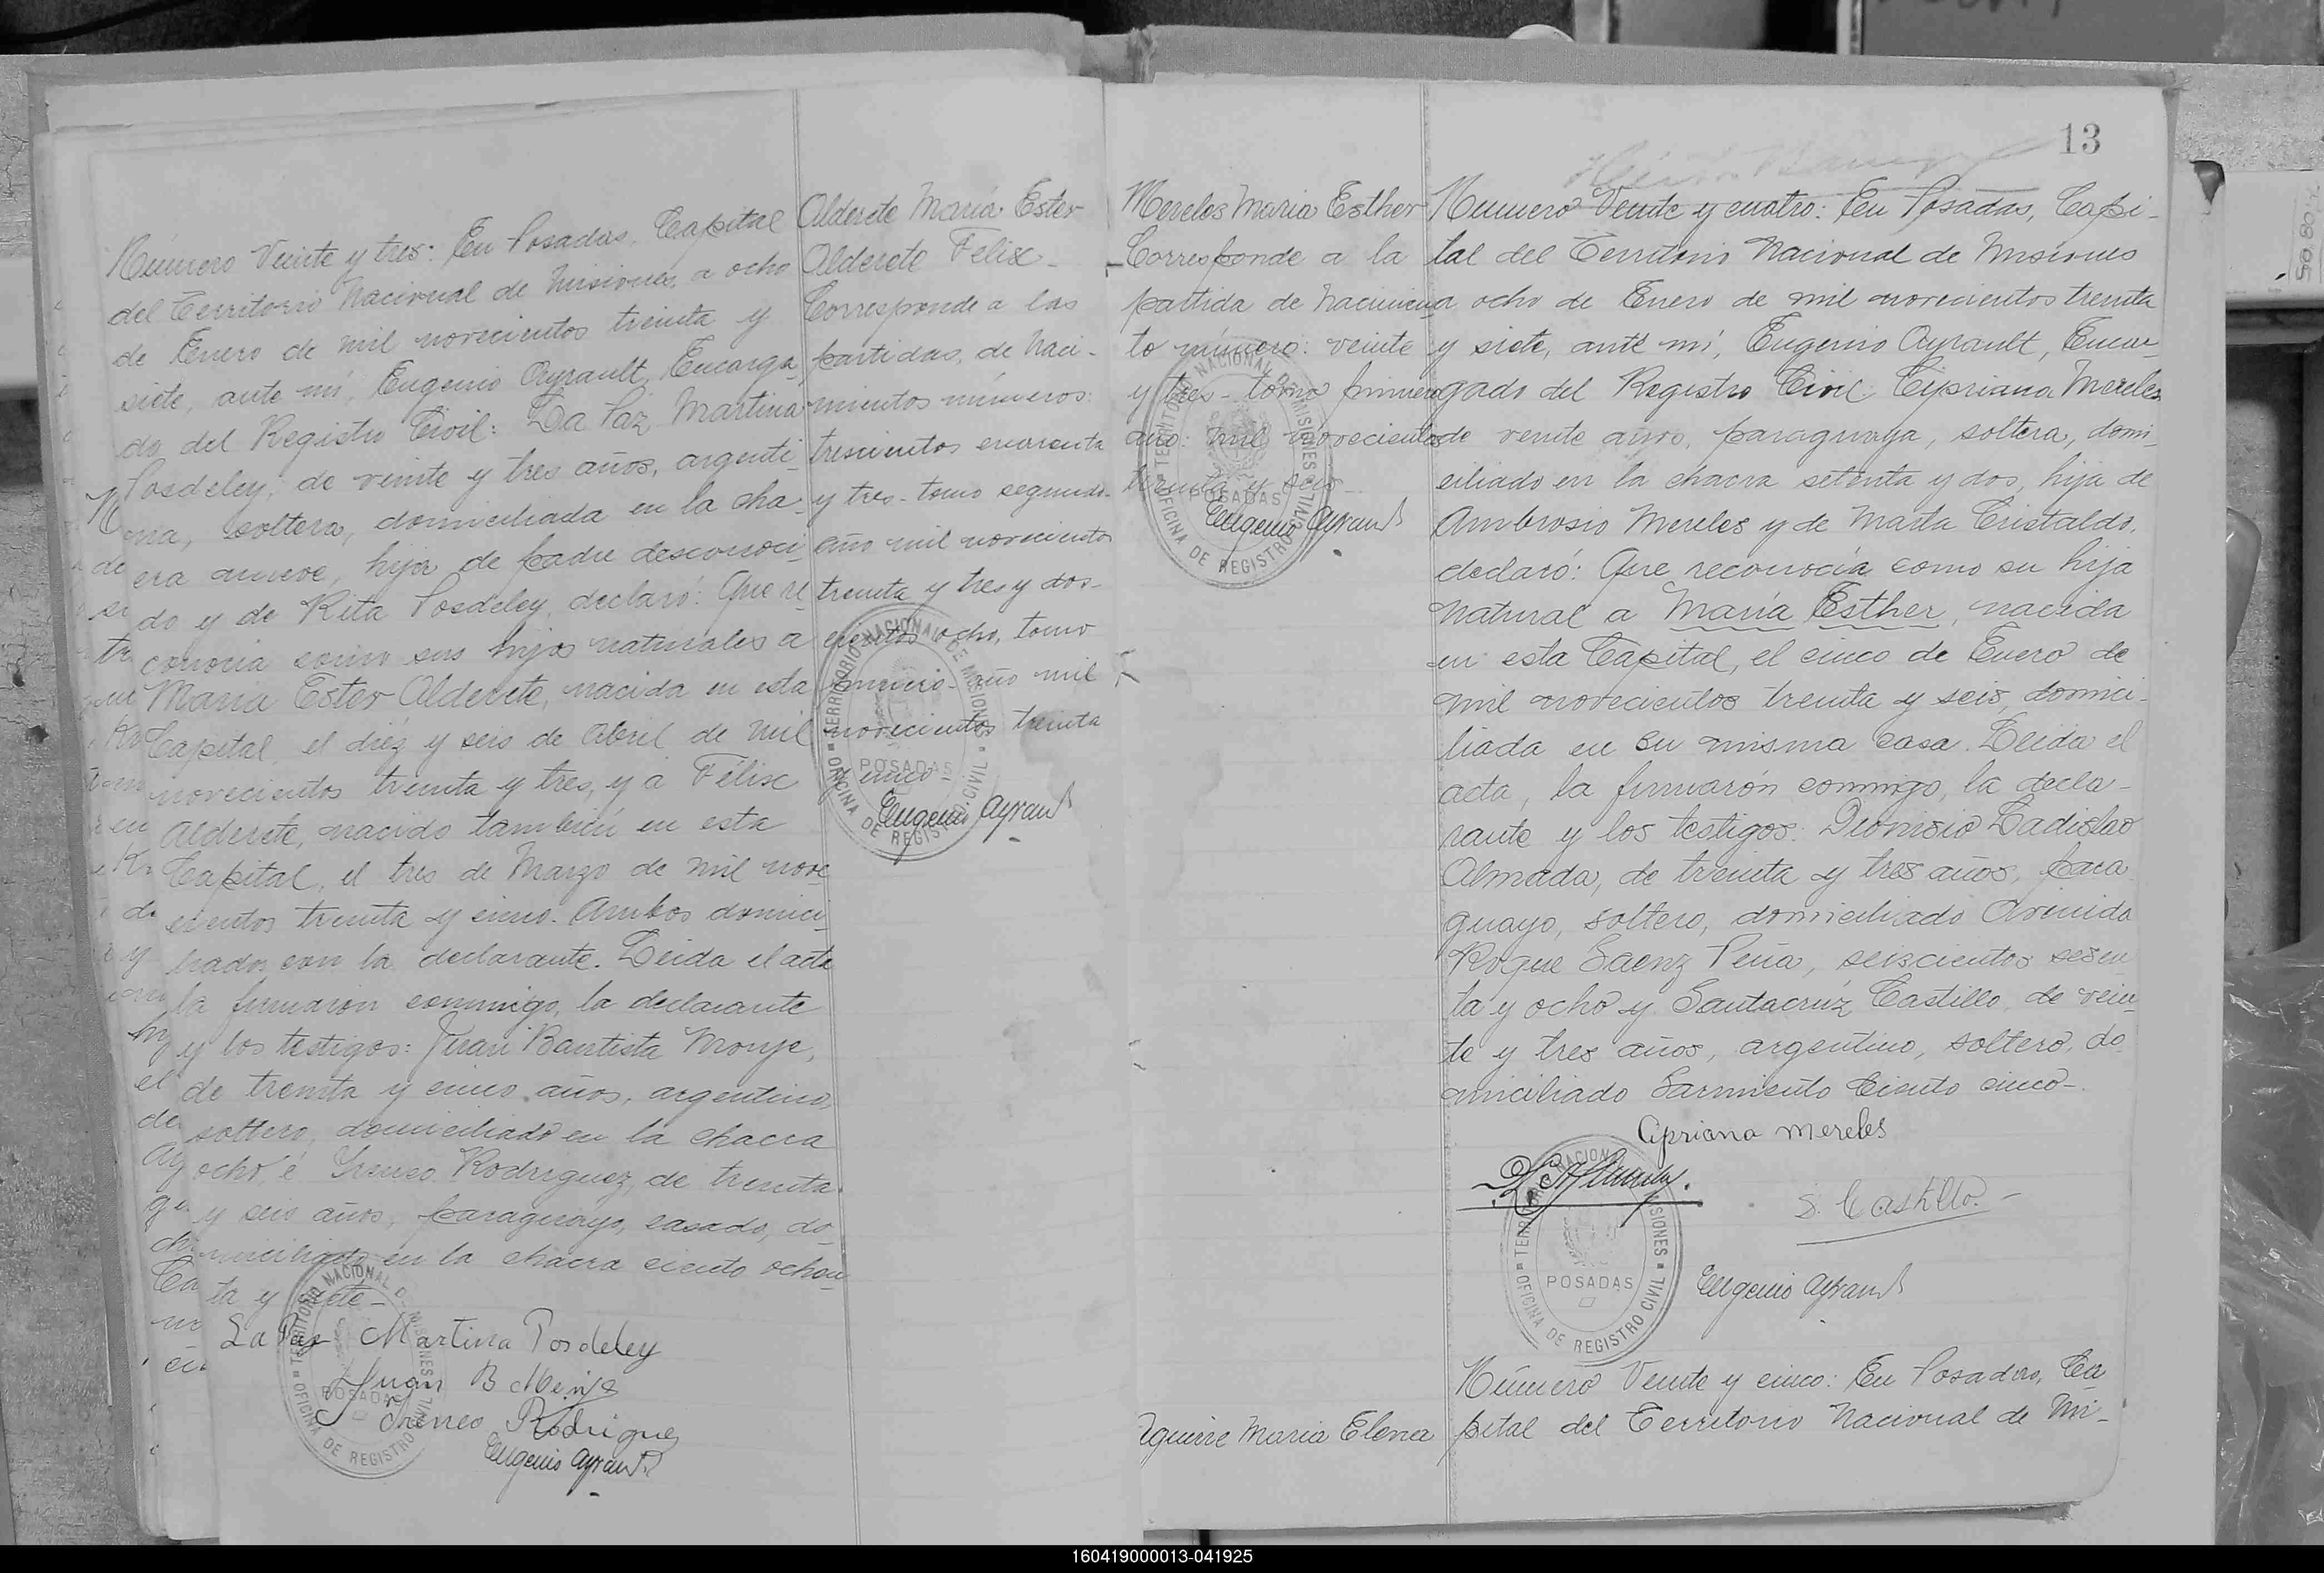 Número Veinte y tres: En Posadas, Capital
del Territorio Nacional de Misiones, a ocho
de Enero de mil novecientos treinta y
siete, ante mí, Eugenio Ayrault, Encarga
do del Registro Civil: La Paz Martina
Posdeley, de veinte y tres años, argenti
na, soltera, domiciliada en la cha-
cra nueve, hija de padre desconoci
do y de Rita Posdeley, declaró: Que re
conocía como sus hijos naturales a
María Ester Alderete, nacida en esta
Capital, el diéz y seis de Abril de mil
novecientos treinta y tres, y a Félix
Alderete, nacido también en esta
Capital, el tres de Marzo de mil nove
cientos treinta y cinco. Ambos domici
liados con la declarante. Leida el acta
la firmaron conmigo, la declarante
y los testigos: Juan Bautista Monje,
de treinta y cinco años, argentino,
soltero, domiciliado en la chacra
ocho é Ireneo Rodriguez, de treinta
y seis años, paraguayo, casado, do-
miciliado en la chacra ciento ochen-
ta y siete-
La Paz Martina Posdeley
Juan B Monje
Ireneo Rodriguez
Eugenio Ayrault
TERRITORIO NACIONAL DE MISIONES
POSADAS
OFICINA DE REGISTRO CIVIL
Alderete María Ester
Alderete Felix-
Corresponde a las
partidas, de naci-
mientos números:
trescientos cuarenta
y tres- tomo segundo-
año mil novecientos
treinta y tres y dos-
cientos ocho, tomo
primero- año mil
novecientos treinta
y cinco-
Eugenio Ayrault
TERRITORIO NACIONAL DE MISIONES
POSADAS
OFICINA DE REGISTRO CIVIL
13
Mereles Maria Esther
Corresponde a la
partida de nacimien
to número: veinte
y tres- tomo primero
año: mil novecientos
treinta y seis-
Eugenio Ayrault
TERRITORIO NACIONAL DE MISIONES
POSADAS
OFICINA DE REGISTRO CIVIL
Número Veinte y cuatro: En Posadas, Capi-
tal del Territorio Nacional de Misiones
a ocho de Enero de mil novecientos treinta
y siete, ante mí, Eugenio Ayrault, Encar-
gado del Registro Civil: Cipriana Mereles
de veinte años, paraguaya, soltera, domi-
ciliado en la chacra setenta y dos, hija de
Ambrosio Mereles y de Marta Cristaldo,
declaró: Que reconocía como su hija
natural a María Esther, nacida
en esta Capital, el cinco de Enero de
mil novecientos treinta y seis, domici-
liada en su misma casa. Leida el
acta, la firmarón conmigo, la decla-
rante y los testigos: Dionisio Ladislao
Almada, de treinta y tres años, para
guayo, soltero, domiciliado Avenida
Roque Saenz Peña, seiscientos sesen
ta y ocho y Santacrúz Castillo, de vein
te y tres años, argentino, soltero, do
miciliado Sarmiento Ciento cinco-.
Cipriana mereles
D. L. Almada.
S. Castillo.-
Eugenio Ayrault
TERRITORIO NACIONAL DE MISIONES
POSADAS
OFICINA DE REGISTRO CIVIL
Aguirre Maria Elena
Número Veinte y cinco: En Posadas, Ca
pital del Territorio Nacional de Mi-
160419000013-041925